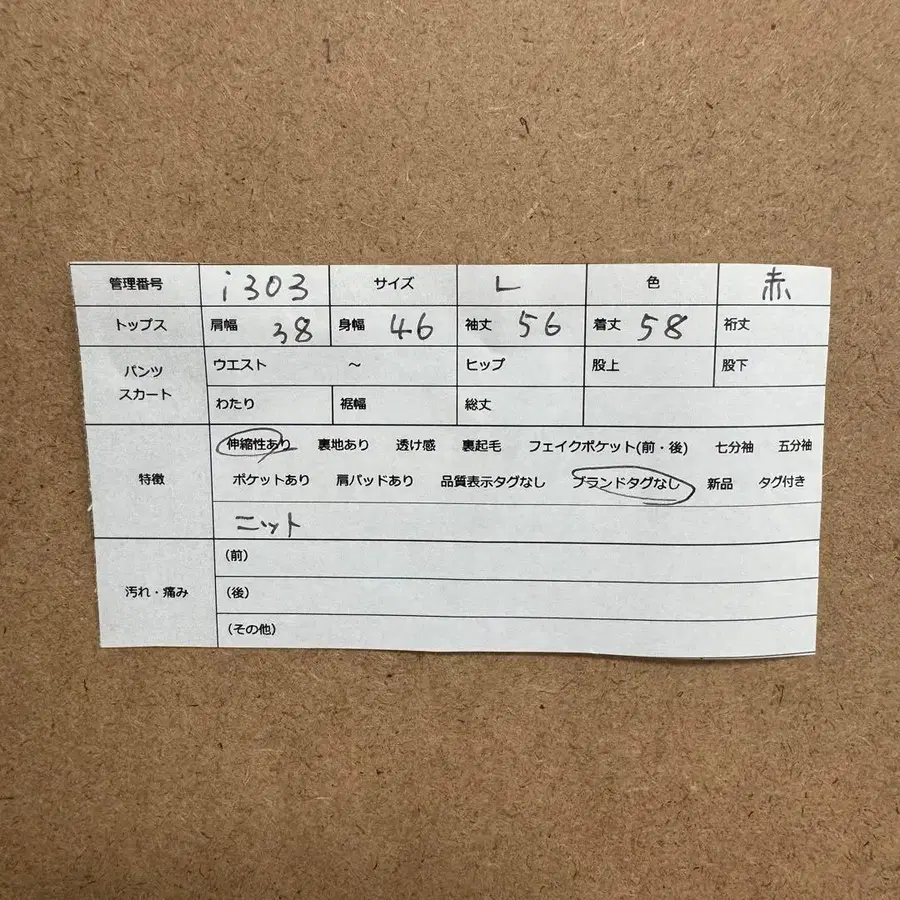 管理番号 i303 サイズ L 色 赤
トップス 肩幅 38 身幅 46 袖丈 56 着丈 58 裄丈
パンツ スカート ウエスト ～ ヒップ 股上 股下
わたり 裾幅 総丈
特徴 伸縮性あり 裏地あり 透け感 裏起毛 フェイクポケット(前・後) 七分袖 五分袖
ポケットあり 肩パッドあり 品質表示タグなし ブランドタグなし 新品 タグ付き
ニット
汚れ・痛み (前)
(後)
(その他)